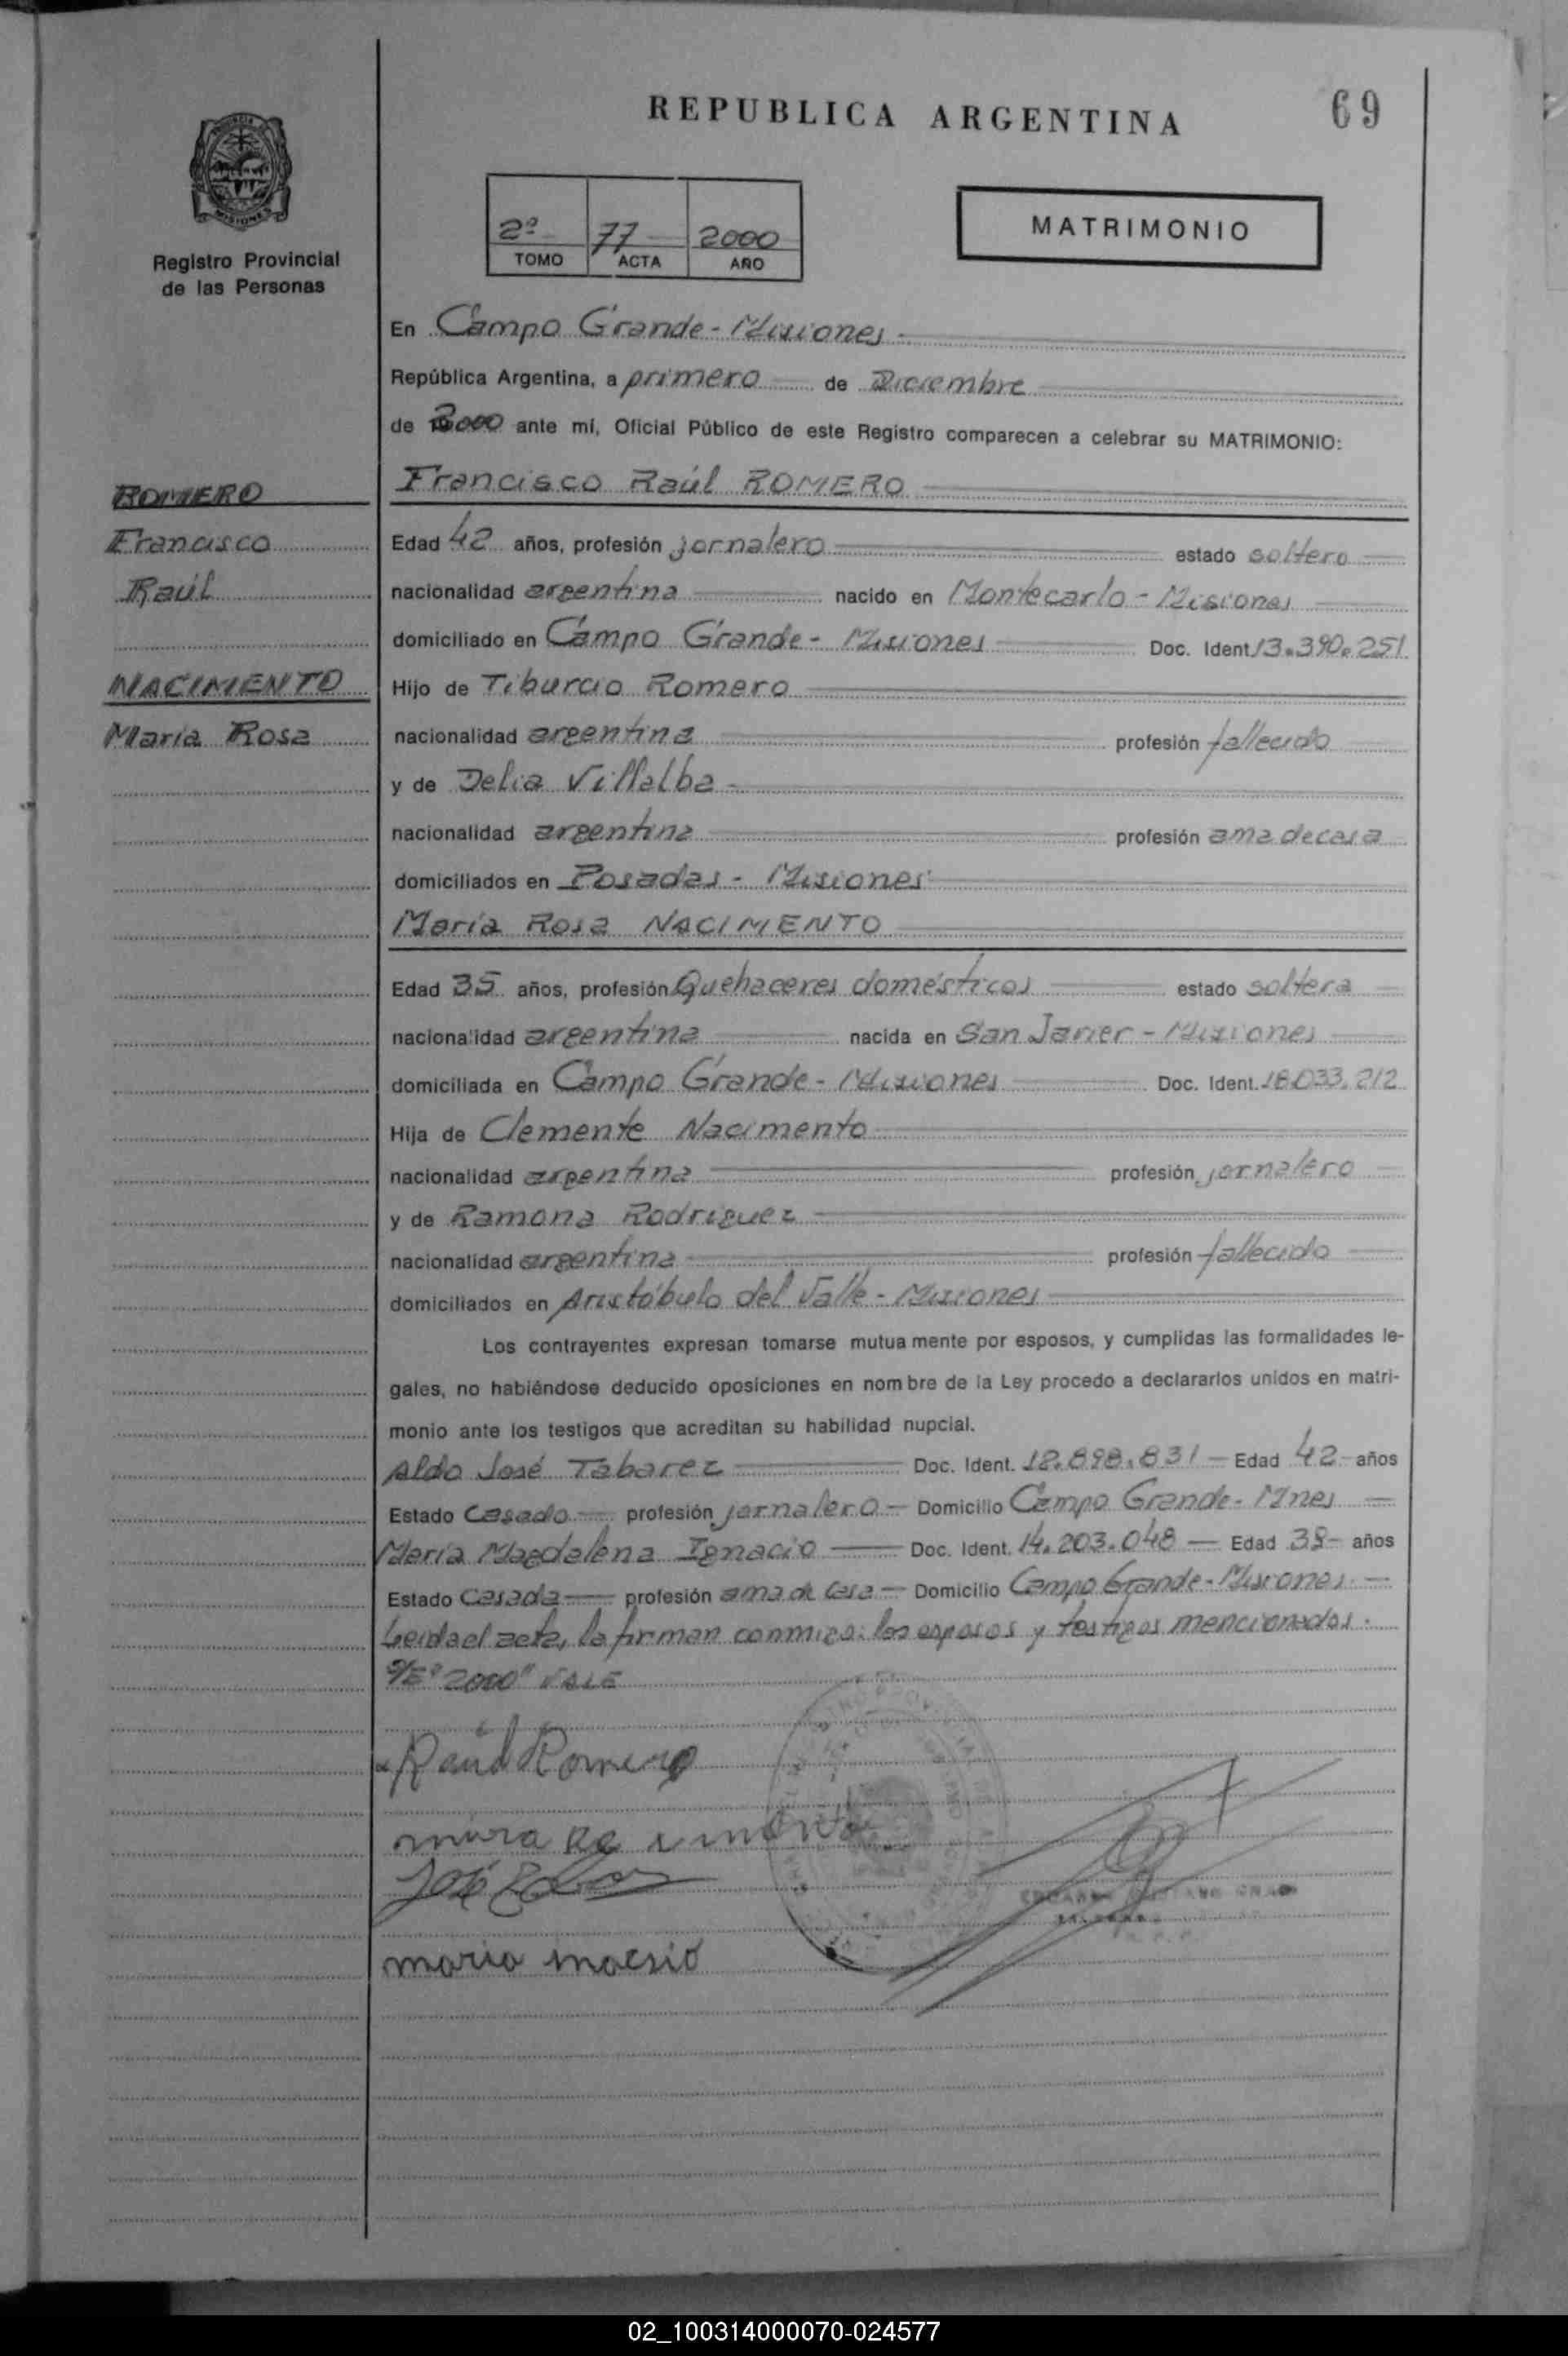 REPUBLICA ARGENTINA
69
MISIONES
Registro Provincial
de las Personas
2º 77 2000
TOMO ACTA AÑO
MATRIMONIO
En Campo Grande - Misiones -
República Argentina, a primero de Diciembre
de 2000 ante mí, Oficial Público de este Registro comparecen a celebrar su MATRIMONIO:
ROMERO
Francisco
Raúl
NACIMIENTO
María Rosa
Francisco Raúl ROMERO
Edad 42 años, profesión jornalero estado soltero
nacionalidad argentina nacido en Montecarlo - Misiones
domiciliado en Campo Grande - Misiones Doc. Ident. 13.390.251
Hijo de Tiburcio Romero
nacionalidad argentina profesión fallecido
y de Delia Villalba -
nacionalidad argentina profesión ama de casa
domiciliados en Posadas - Misiones
María Rosa NACIMENTO
Edad 35 años, profesión Quehaceres domésticos estado soltera
nacionalidad argentina nacida en San Javier - Misiones
domiciliada en Campo Grande - Misiones Doc. Ident. 18.033.212
Hija de Clemente Nacimento
nacionalidad argentina profesión jornalero
y de Ramona Rodriguez
nacionalidad argentina profesión fallecido
domiciliados en Aristóbulo del Valle - Misiones
Los contrayentes expresan tomarse mutuamente por esposos, y cumplidas las formalidades le-
gales, no habiéndose deducido oposiciones en nombre de la Ley procedo a declararlos unidos en matri-
monio ante los testigos que acreditan su habilidad nupcial.
Aldo José Tabarez Doc. Ident. 12.898.831 - Edad 42 - años
Estado Casado - profesión jornalero - Domicilio Campo Grande - Mnes -
María Magdalena Ignacio Doc. Ident. 14.203.048 - Edad 38 - años
Estado Casada profesión ama de casa - Domicilio Campo Grande - Misiones -
Leida el acta, la firman conmigo: los esposos y testigos mencionados.
S/E "2000" VALE
Raúl Romero
José
maria
02_100314000070-024577